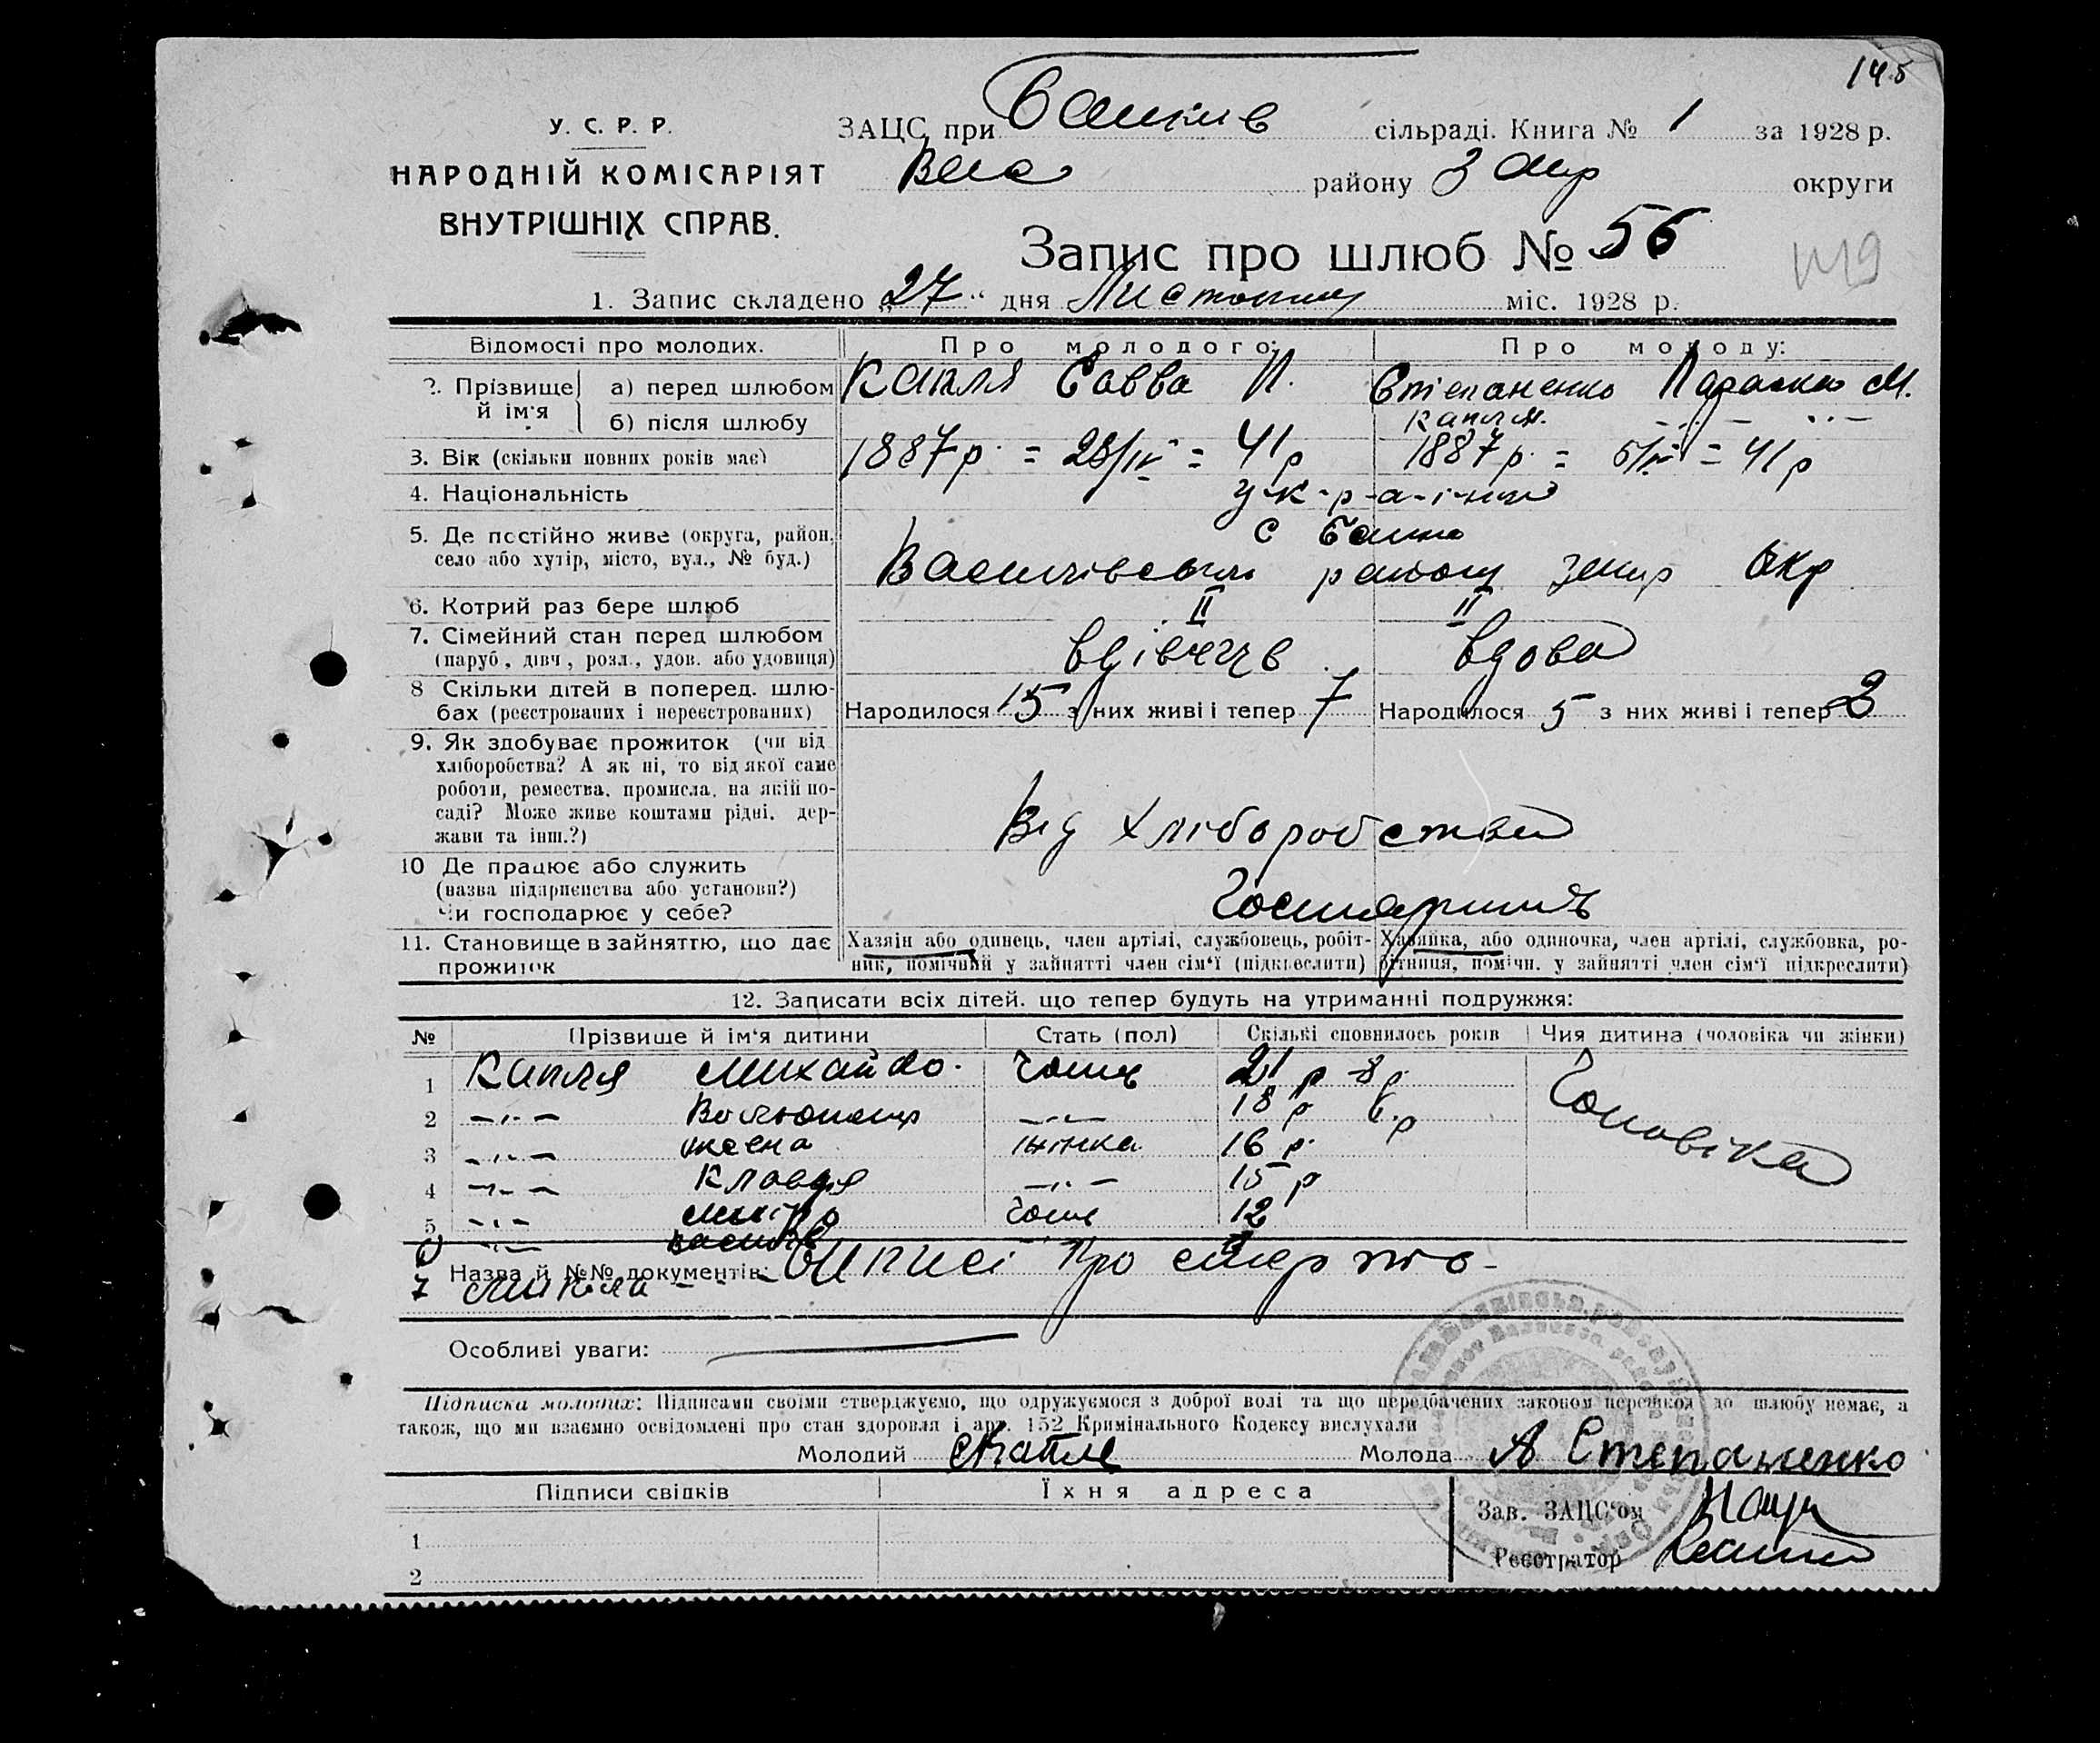 145
У. С. Р. Р.
НАРОДНІЙ КОМІСАРІЯТ
ВНУТРІШНІХ СПРАВ.
ЗАЦС при сільраді. Книга № 1 за 1928 р.
Вас району Запор округи
Запис про шлюб № 56
1. Запис складено „27“ дня Листопад міс. 1928 р.
Відомості про молодих. Про молодого: Про молоду:
2. Прізвище й ім'я а) перед шлюбом Капля Савва П. Степаненко Параска М.
б) після шлюбу Капля
3. Вік (скільки повних років має) 1887 р. = 41 р 1887 р. = 41 р
4. Національність у-к-р-а-їнці
5. Де постійно живе (округа, район, село або хутір, місто, вул., № буд.) с
району Окр
6. Котрий раз бере шлюб II II
7. Сімейний стан перед шлюбом вдівець вдова
(паруб., дівч., розл., удов. або удовиця)
8 Скільки дітей в поперед. шлюбах (реєстрованих і нереєстрованих) Народилося 15 з них живі і тепер 7 Народилося 5 з них живі і тепер 3
9. Як здобуває прожиток (чи від
хліборобства? А як ні, то від якої саме
роботи, ремества, промисла, на якій по-
саді? Може живе коштами рідні, дер-
жави та інш.?) Від хліборобства
10 Де працює або служить
(назва підприємства або установи?)
Чи господарює у себе?
11. Становище в зайняттю, що дає прожиток
Хазяін або одинець, член артілі, службовець, робіт-
ник, помічний у зайнятті член сім'ї (підкреслити)
Хазяйка, або одиночка, член артілі, службовка, ро-
бітниця, помічн. у зайнятті член сім'ї підкреслити)
12. Записати всіх дітей, що тепер будуть на утриманні подружжя:
№ Прізвище й ім'я дитини Стать (пол) Скількі сповнилось років Чия дитина (чоловіка чи жінки)
1 Капля Михайло. 21 р Чоловіка
2 -"- 18 р
3 -"- жінка 16 р.
4 -"- Клавдя -"- 15 р
5 -"- 12
6 -"- Василь
Назва й №№ документів: Виписі про смерть
7 Микола
Особливі уваги:
Підписка молодих: Підписами своїми стверджуємо, що одружуємося з доброї волі та що передбачених законом перешкод до шлюбу немає, а
також, що ми взаємно освідомлені про стан здоровля і арт. 152 Кримінального Кодексу вислухали
Молодий СКапля Молода Степаненко
Підписи свідків Їхня адреса
Зав. ЗАЦС'ом
1
Реєстратор
2